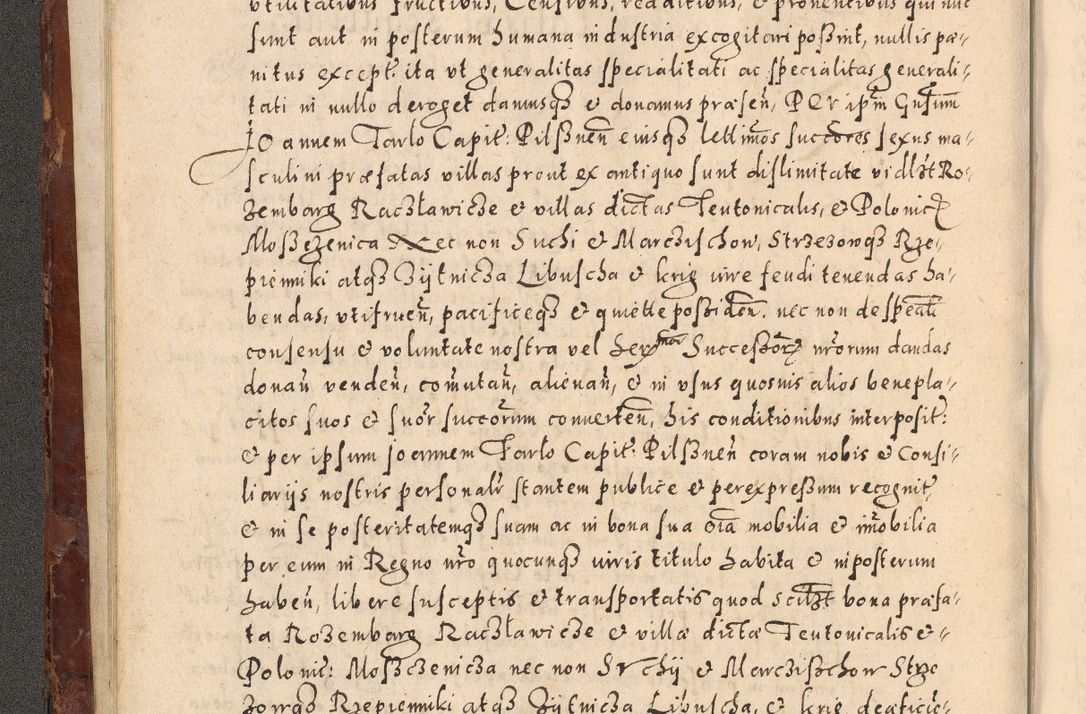 utilitatibus fructibus, Censibus, redditibus, & proventibus qui nūc
sunt aut in posterum humana industria excogitari poßint, nullis pæ-
nitus except: ita ut generalitas specialitati ac specialitas generali-
tati in nullo deroget damusqȝ & donamus præsen̄, PER ip̄m Gn̄sum
Joannem Tarlo Capit: Pilßnen̄ eiusqȝ leḡimos succores sexus ma-
sculini præfatas villas prout ex antiquo sunt dislimitate vidlz̄t Ro-
zembarg Raczławicze & villas dictas Teutonicalis, & Polonic
Moszczenica Nec non Suchi & Marczischow, Strzezowqȝ Rze-
pienniki atqȝ Zÿtnicza Libuscha & krig iure feudi tenendas ha-
bendas, utifruen̄, pacificeqȝ & quiete poßiden̄. nec non de speāli
consensu & voluntate nostra vel Ser^mor Successor nr̄orum dandas
donan̄ venden̄, com̄utan̄, alienan̄, & in usus quosvis alios benepla-
citos suos & suor̄ succor̄um converten̄, his conditionibus interposit:
& per ipsum joannem Tarlo Capit: Pilßnen̄ coram nobis & Consi-
liarÿs nostris personalr̄ stantem publice & per expreßum recognit,
& in se posteritatemqȝ suam ac in bona sua oīa mobilia & im̄obilia
per eum in Regno nr̄o quocunqȝ iuris titulo habita & inposterum
haben̄, libere susceptis & transportatis quod scilz̄t bona præfa-
ta Rozembarg Raczławicze & villæ dictæ Teutonicalis & -
Polonic: Moszczenicza nec non Suchÿ & Marczischow Strze
zowqȝ Rzepienniki atqȝ Zÿtnicza Libuscha, & krig deficie-